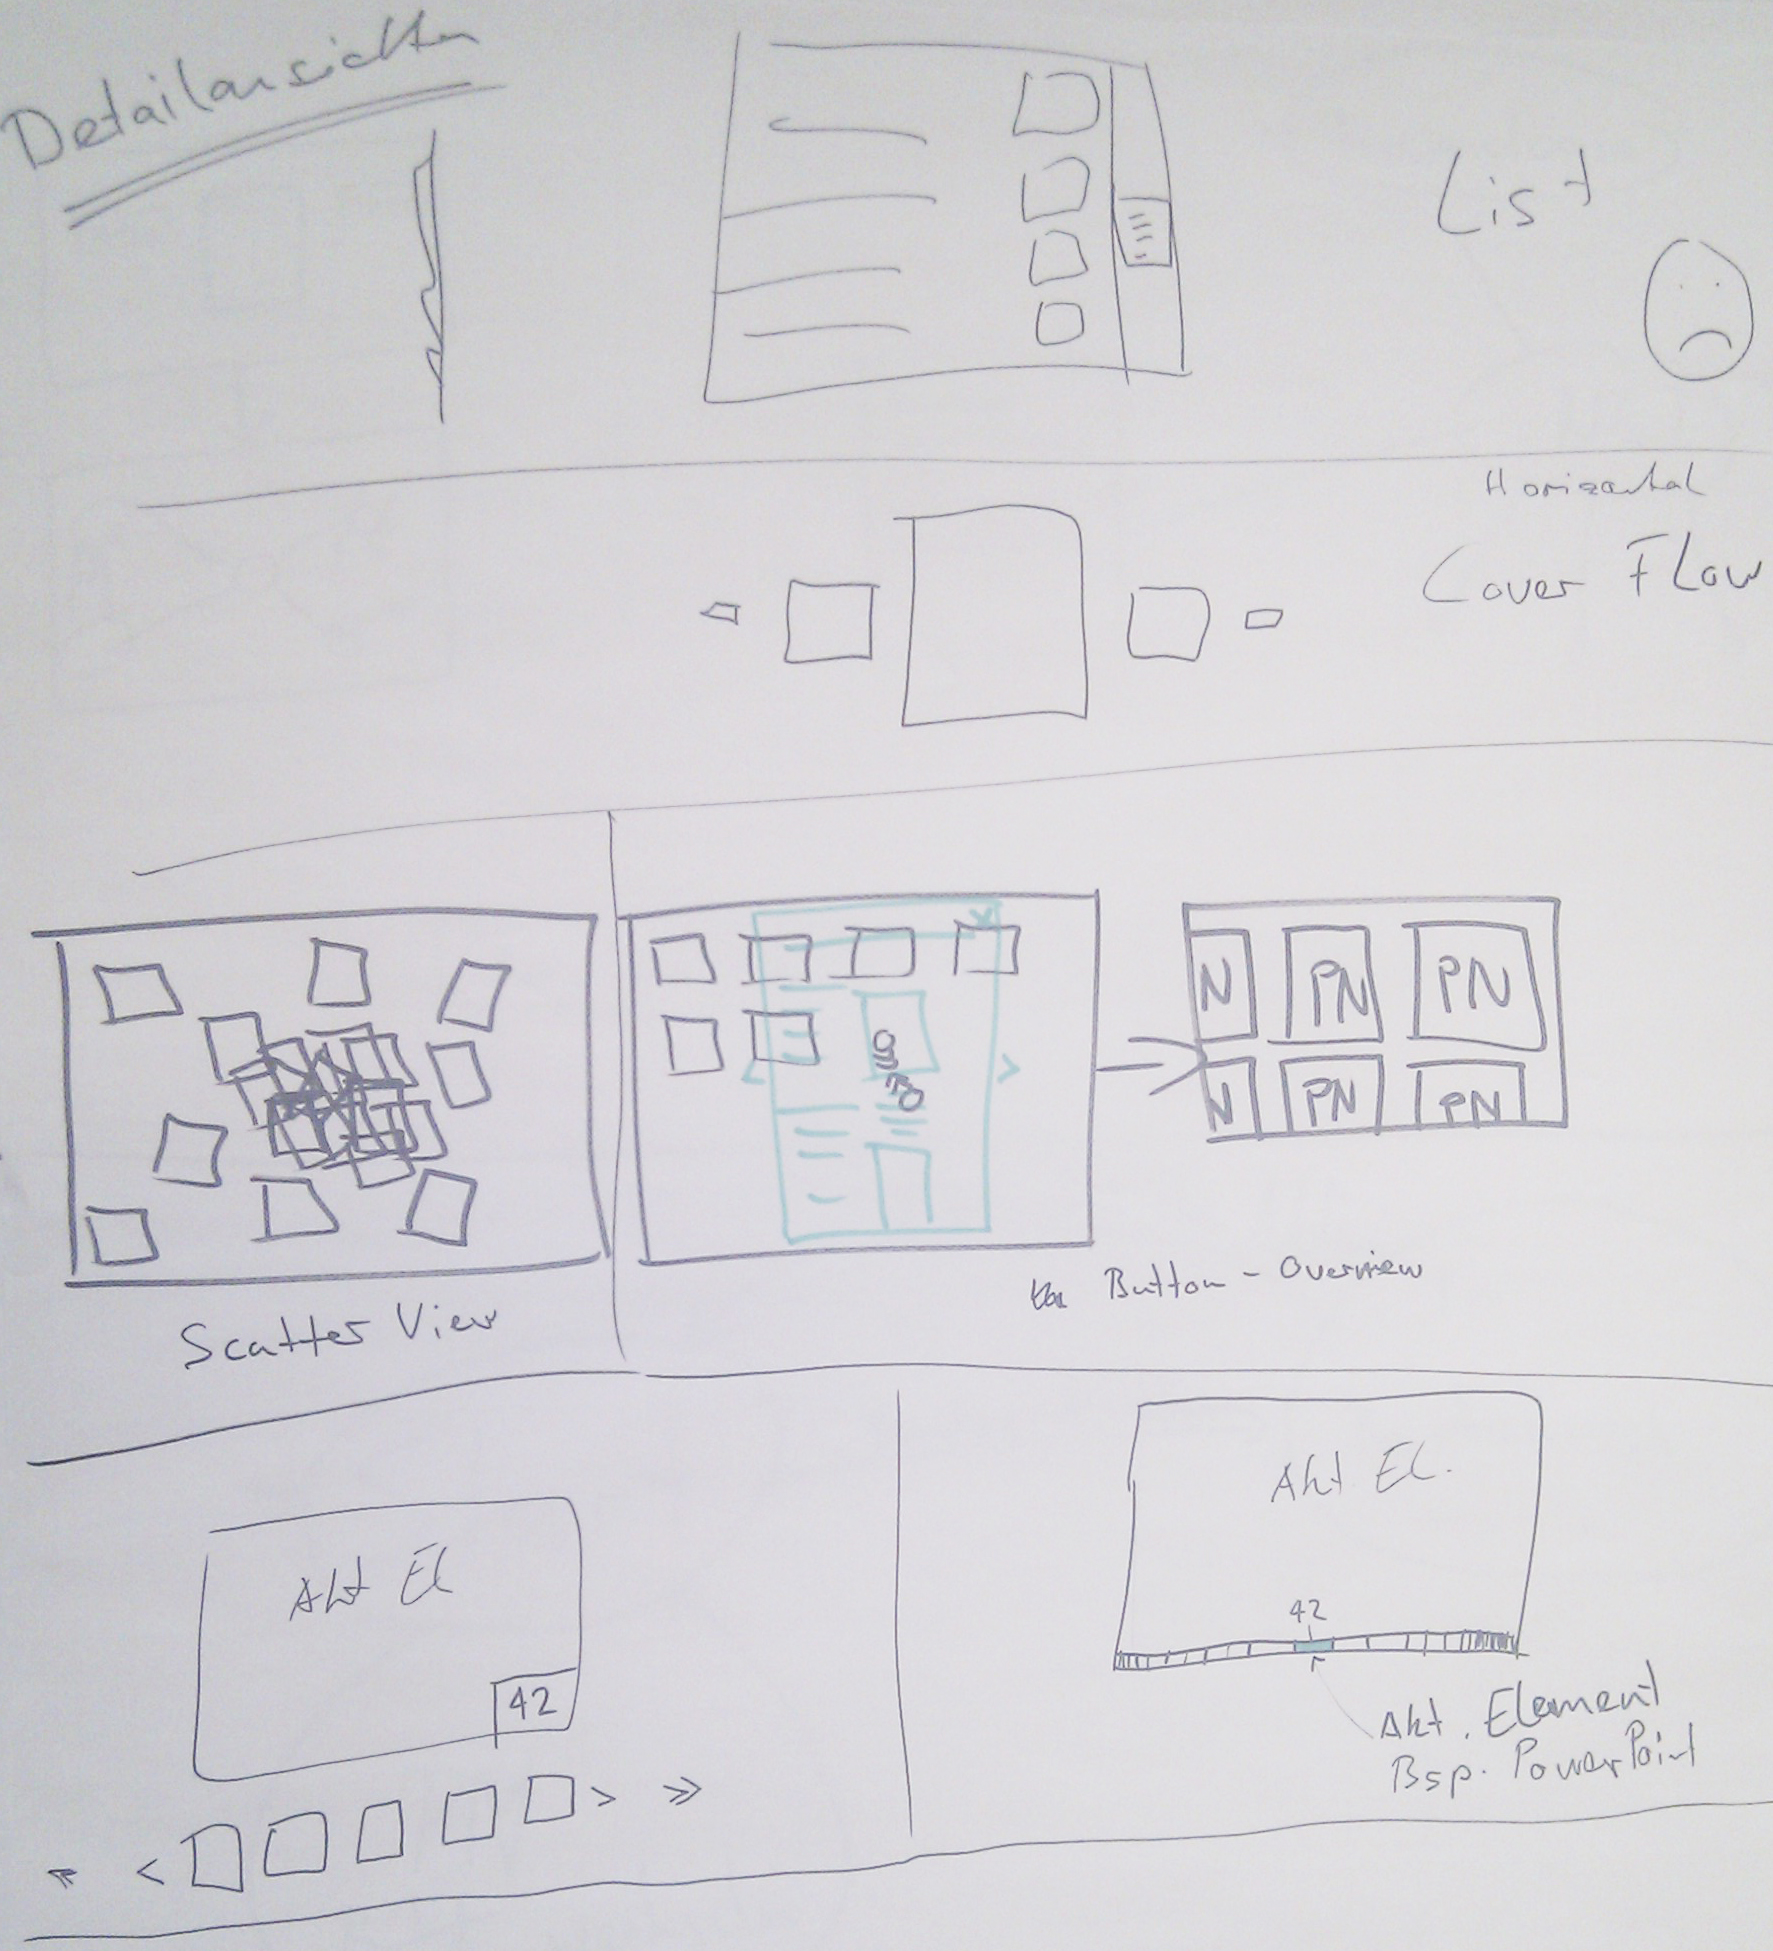 Detailansichten
List
Horizontal
Cover Flow
N PN PN
N PN PN
Button - Overview
Scatter View
Akt El
42
< > >>
Akt El.
42
Akt. Element
Bsp. PowerPoint